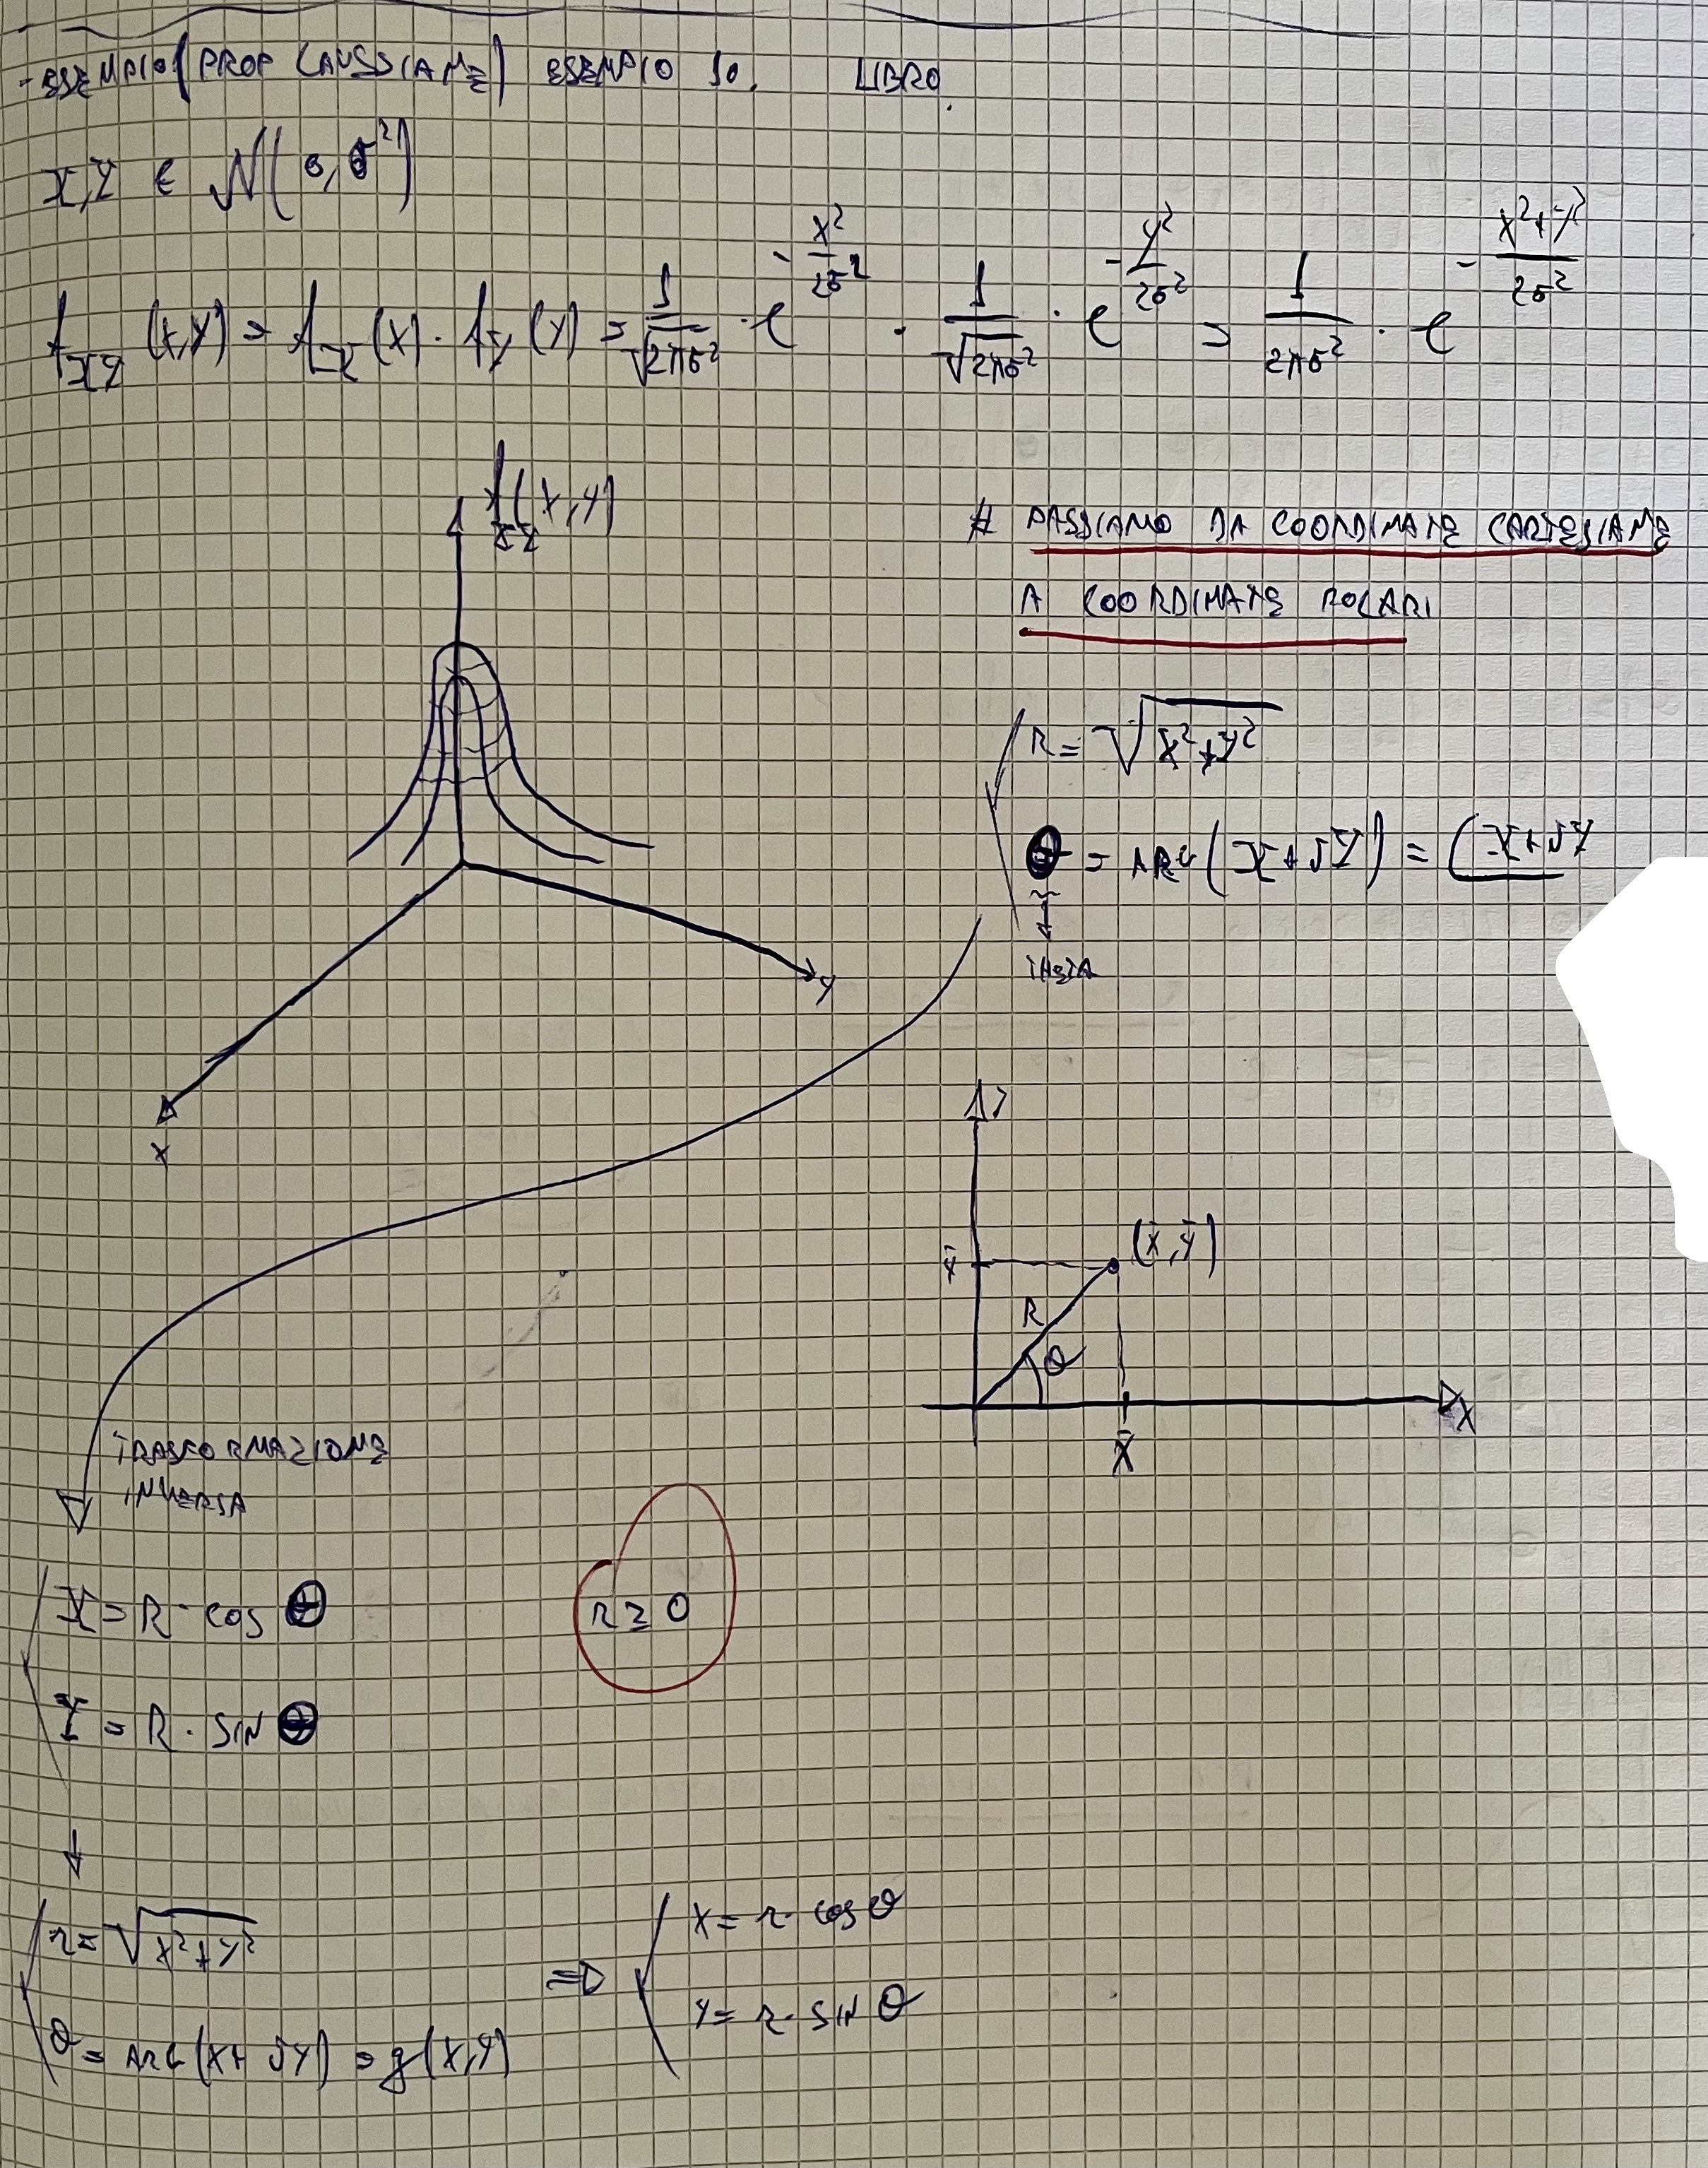 - ESEMPIO (PROP GAUSSIANE) ESEMPIO 10. LIBRO.
X,Y ∈ N(0,σ²)
f_XY (x,y) = f_X (x) · f_Y (y) = 1/√(2πσ²) · e^(-x²/2σ²) · 1/√(2πσ²) · e^(-y²/2σ²) = 1/(2πσ²) · e^(-(x²+y²)/2σ²)
f_XY (x,y)
# PASSIAMO DA COORDINATE CARTESIANE
A COORDINATE POLARI
R = √(X²+Y²)
Θ = ARG(X+JY) = ∠X+JY
↓
THETA
x
y
y
ȳ
(x̄,ȳ)
R
θ
x
x̄
TRASFORMAZIONE
INVERSA
X = R · cos Θ
Y = R · SIN Θ
r ≥ 0
↓
r = √(x²+y²)
θ = ARG(x+JY) = g(x,y)
=>
x = r · cos θ
y = r · SIN θ